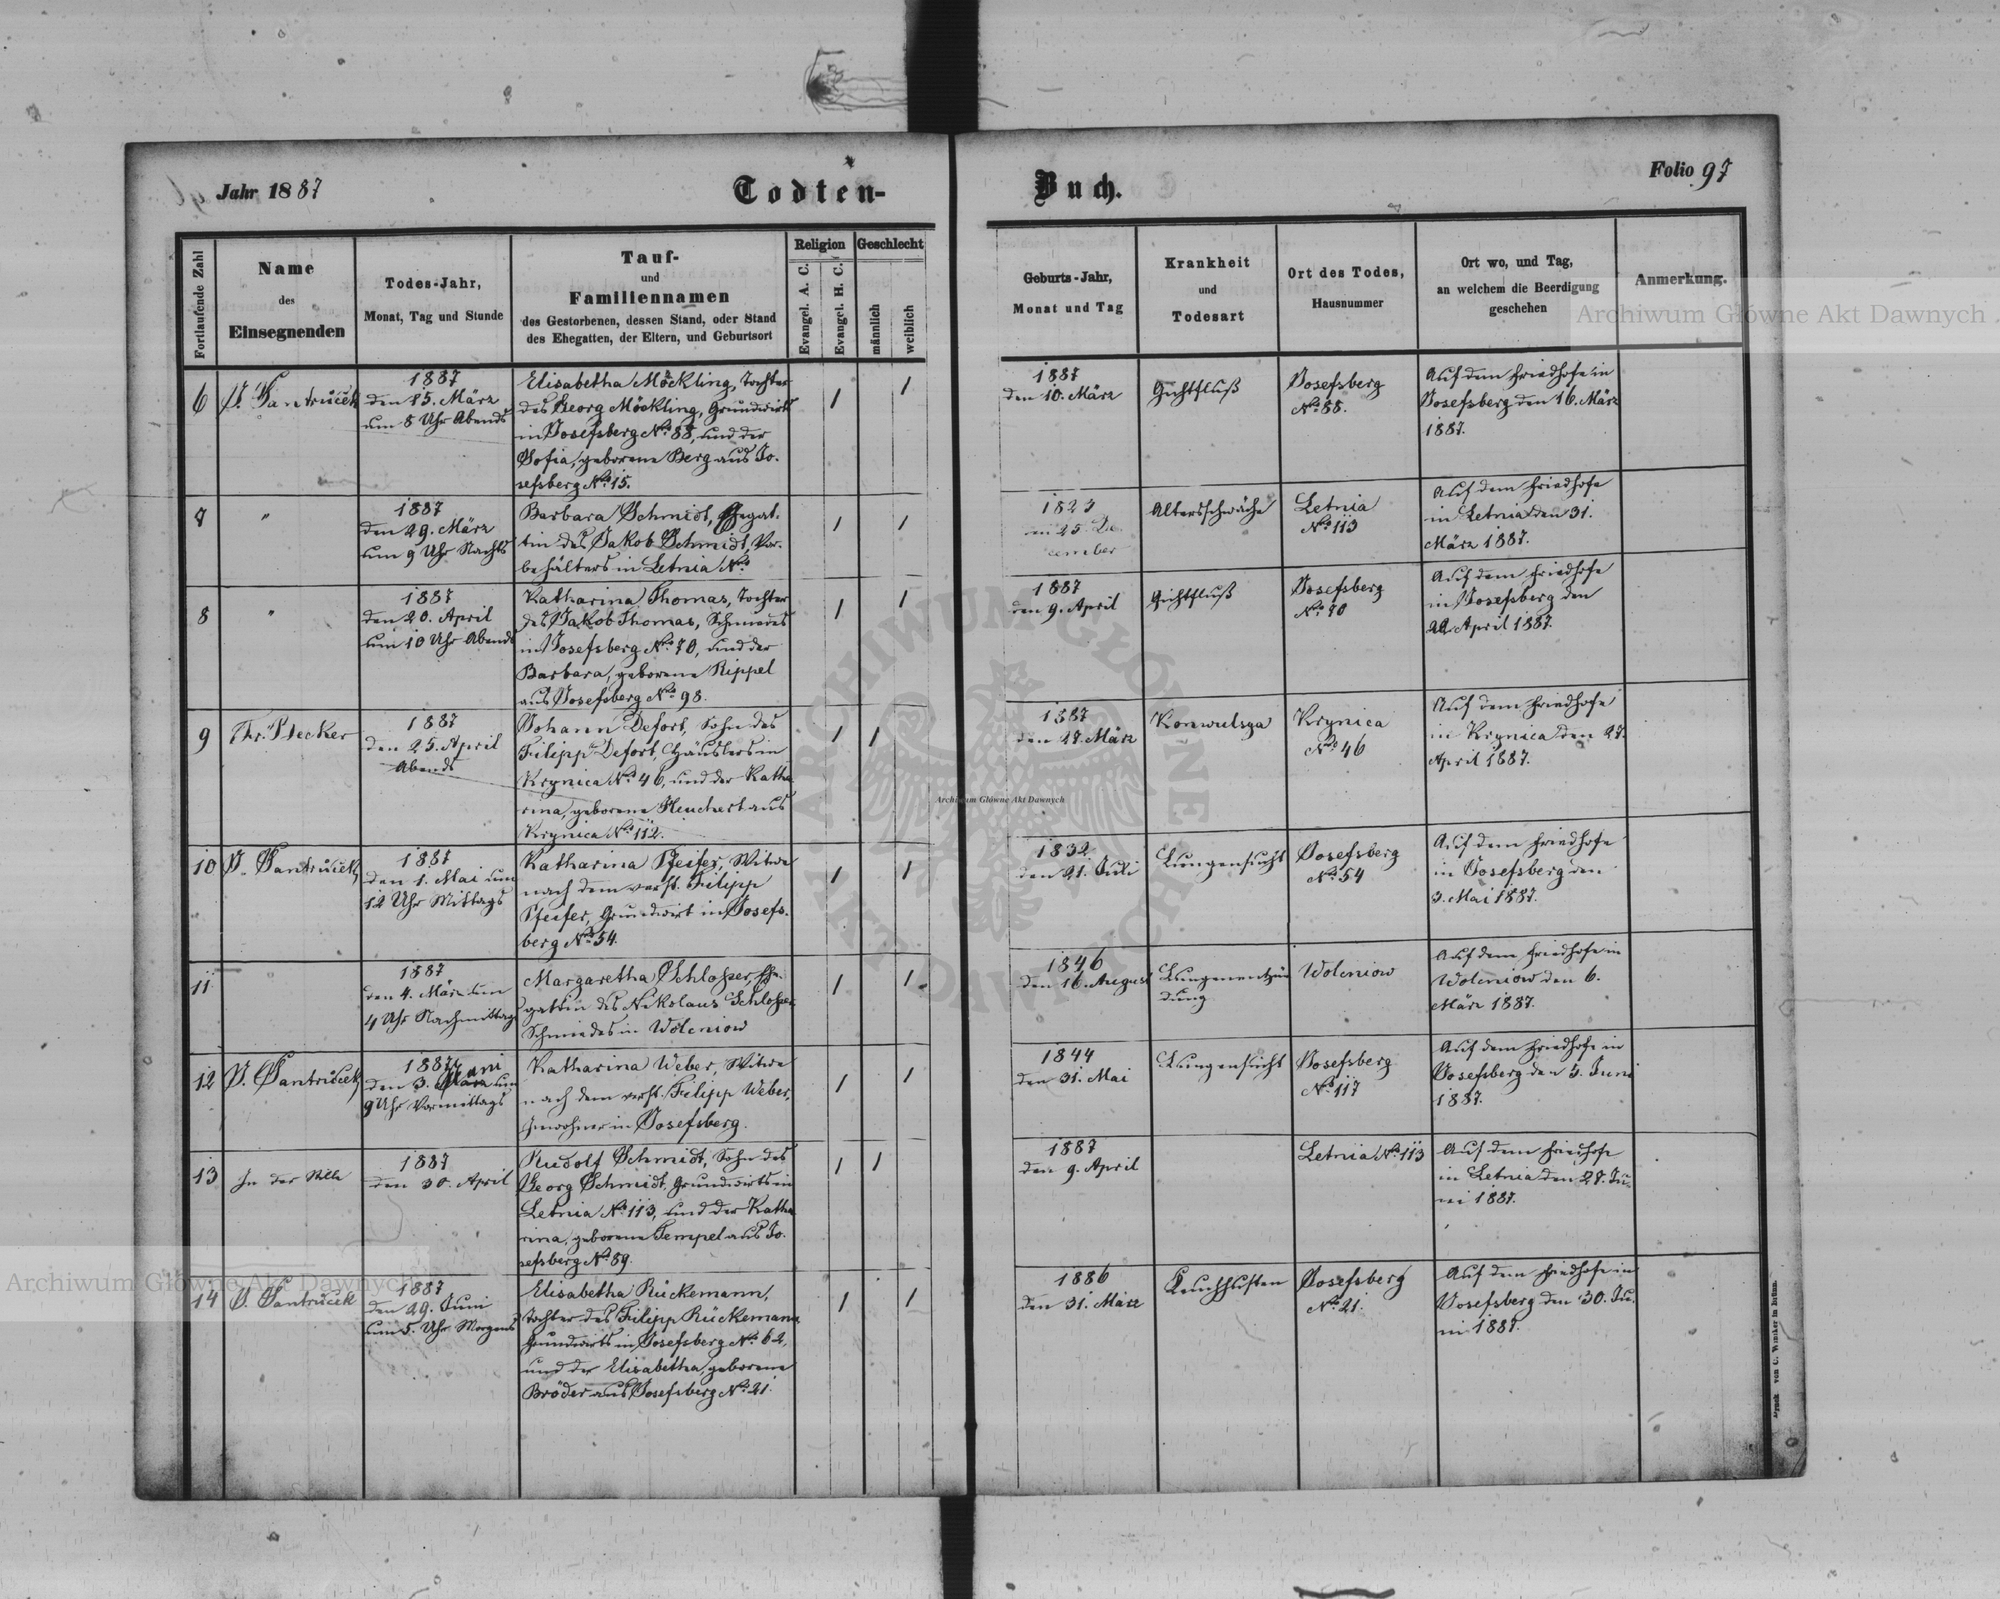 Jahr 1887
Todten-
Buch.
Folio 97
Fortlaufende Zahl
Name
des
Einsegnenden
Todes-Jahr,
Monat, Tag und Stunde
Tauf-
und
Familiennamen
des Gestorbenen, dessen Stand, oder Stand
des Ehegatten, der Eltern, und Geburtsort
Religion
Evangel. A. C.
Evangel. H. C.
Geschlecht
männlich
weiblich
Geburts-Jahr,
Monat und Tag
Krankheit
und
Todesart
Ort des Todes,
Hausnummer
Ort wo, und Tag,
an welchem die Beerdigung
geschehen
Anmerkung.
6
J. Jantrucek
1887
den 15. März
um 8 Uhr Abends
Elisabetha Möckling, Tochter
des Georg Möckling, Grundwirts
in Josefsberg No. 88, und der
Sofia, geborene Berg aus Jo-
sefsberg No. 15.
1
1
1887
den 10. März
Gichtfluß
Josefsberg
No. 88.
Auf dem Friedhofe in
Josefsberg den 16. März
1887.
7
"
1887
den 29. März
um 9 Uhr Nachts
Barbara Schmidt, Ehegat-
tin des Jakob Schmidt, Vor-
behälters in Letnia No.
1
1
1823
den 25. De-
cember
Altersschwäche
Letnia
No. 113
Auf dem Friedhofe
in Letnia den 31.
März 1887.
8
"
1887
den 20. April
um 10 Uhr Abends
Katharina Thomas, Tochter
des Jakob Thomas, Schmiedes
in Josefsberg No. 70, und der
Barbara, geborene Rippel
aus Josefsberg No. 98.
1
1
1887
den 9. April
Gichtfluß
Josefsberg
No. 70
Auf dem Friedhofe
in Josefsberg den
22. April 1887.
9
Fr. Stecker
1887
den 25. April
Abends
Johann Defort, Sohn des
Filipp Defort, Häuslers in
Krynica No. 46, und der Katha
rina, geborene Heuchert aus
Krynica No. 112.
1
1
1887
den 27. März
Konwulsya
Krynica
No. 46
Auf dem Friedhofe
in Krynica den 27.
April 1887.
10
J. Jantrucek
1887
den 1. Mai um
12 Uhr Mittags
Katharina Pfeifer, Witwe
nach dem verst. Filipp
Pfeifer, Grundwirt in Josefs-
berg No. 54.
1
1
1832
den 21. Juli
Lungensucht
Josefsberg
No. 54
Auf dem Friedhofe
in Josefsberg den
3. Mai 1887.
11
1887
den 4. März um
4 Uhr Nachmittags
Margaretha Schlosser, Ehe-
gattin des Nikolaus Schlosser
Schmiedes in Wolcniow
1
1
1846
den 16. August
Lungenentzün
dung
Wolcniow
Auf dem Friedhofe in
Wolcniow den 6.
März 1887.
12
J. Jantrucek
1887
den 3. Juni um
9 Uhr Vormittags
Katharina Weber, Witwe
nach dem verst. Filipp Weber,
Inwohner in Josefsberg.
1
1
1844
den 31. Mai
Lungensucht
Josefsberg
No. 117
Auf dem Friedhofe in
Josefsberg den 5. Juni
1887.
13
In der Stille
1887
den 30. April
Rudolf Schmidt, Sohn des
Georg Schmidt, Grundwirts in
Letnia No. 113, und der Katha
rina, geborene Tempel aus Jo-
sefsberg No. 89.
1
1
1887
den 9. April
Letnia No. 113
Auf dem Friedhofe
in Letnia den 27. Ju-
ni 1887.
14
J. Jantrucek
1887
den 29. Juni
um 5. Uhr Morgens
Elisabetha Rückemann,
Tochter des Filipp Rückemann
Grundwirts in Josefsberg No. 62,
und der Elisabetha, geborene
Bröder aus Josefsberg No. 21.
1
1
1886
den 31. März
Keuchhusten
Josefsberg
No. 21.
Auf dem Friedhofe in
Josefsberg den 30. Ju-
ni 1887.
von C. Winiker in Brünn.
Archiwum Główne Akt Dawnych
Archiwum Główne Akt Dawnych
Archiwum Główne Akt Dawnych
ARCHIWUM GŁÓWNE AKT DAWNYCH